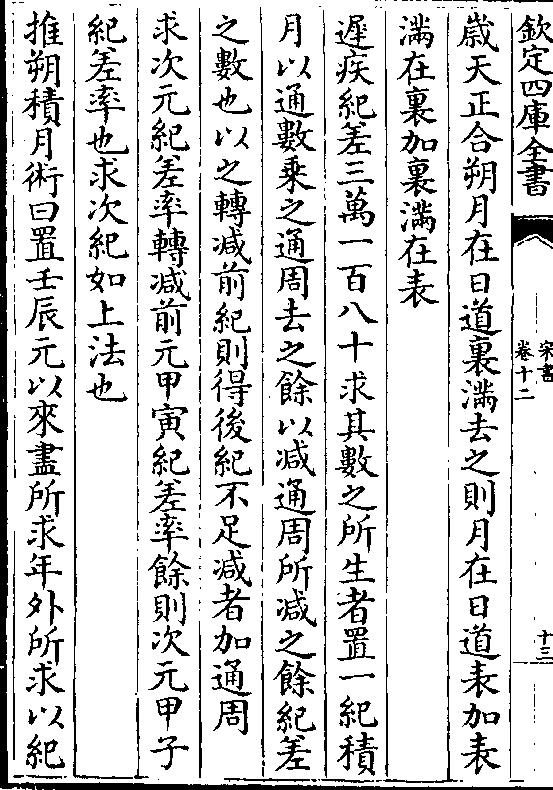 欽定四庫全書
宋書
卷十二
十三
歲天正合朔月在日道裏滿去之則月在日道表加表
滿在裏加裏滿在表
遲疾紀差三萬一百八十求其數之所生者置一紀積
月以通數乘之通周去之餘以减通周所减之餘紀差
之數也以之轉减前紀則得後紀不足减者加通周
求次元紀差率轉减前元甲寅紀差率餘則次元甲子
紀差率也求次紀如上法也
推朔積月術曰置壬辰元以來盡所求年外所求以紀